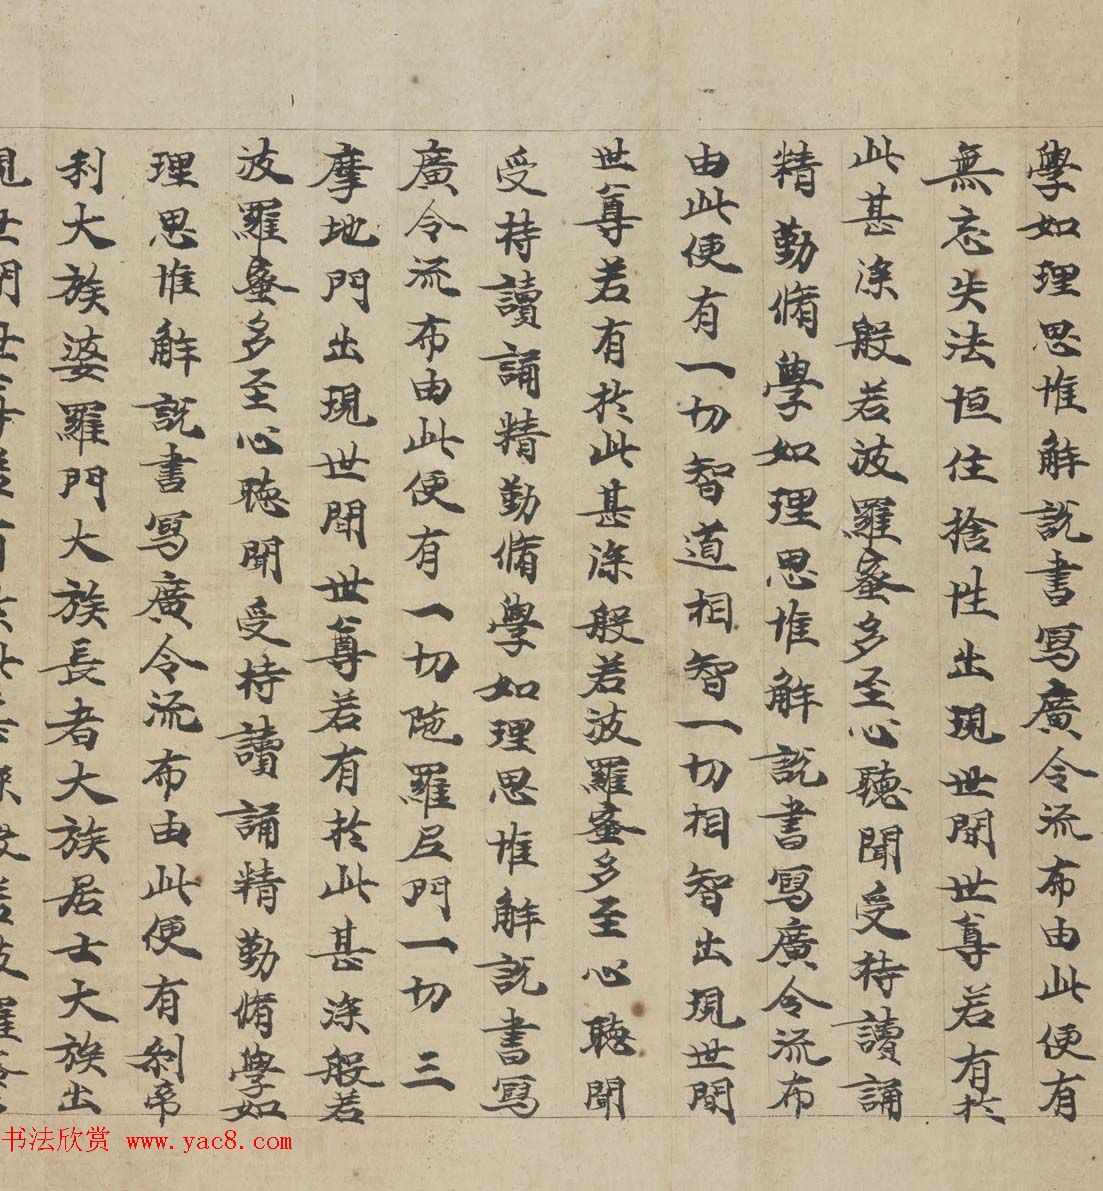 學如理思惟解説書寫廣令流布由此便有
無忘失法恒住捨性出現世間世尊若有於
此甚深般若波羅蜜多至心聽聞受持讀誦
精勤脩學如理思惟解説書寫廣令流布
由此便有一切智道相智一切相智出現世間
世尊若有於此甚深般若波羅蜜多至心聽聞
受持讀誦精勤脩學如理思惟解説書寫
廣令流布由此便有一切陁羅尼門一切三
摩地門出現世間世尊若有於此甚深般若
波羅蜜多至心聽聞受持讀誦精勤脩學如
理思惟解説書寫廣令流布由此便有刹帝
利大族婆羅門大族長者大族居士大族出
現世間世尊若有於此甚深般若波羅蜜
书法欣赏 www.yac8.com